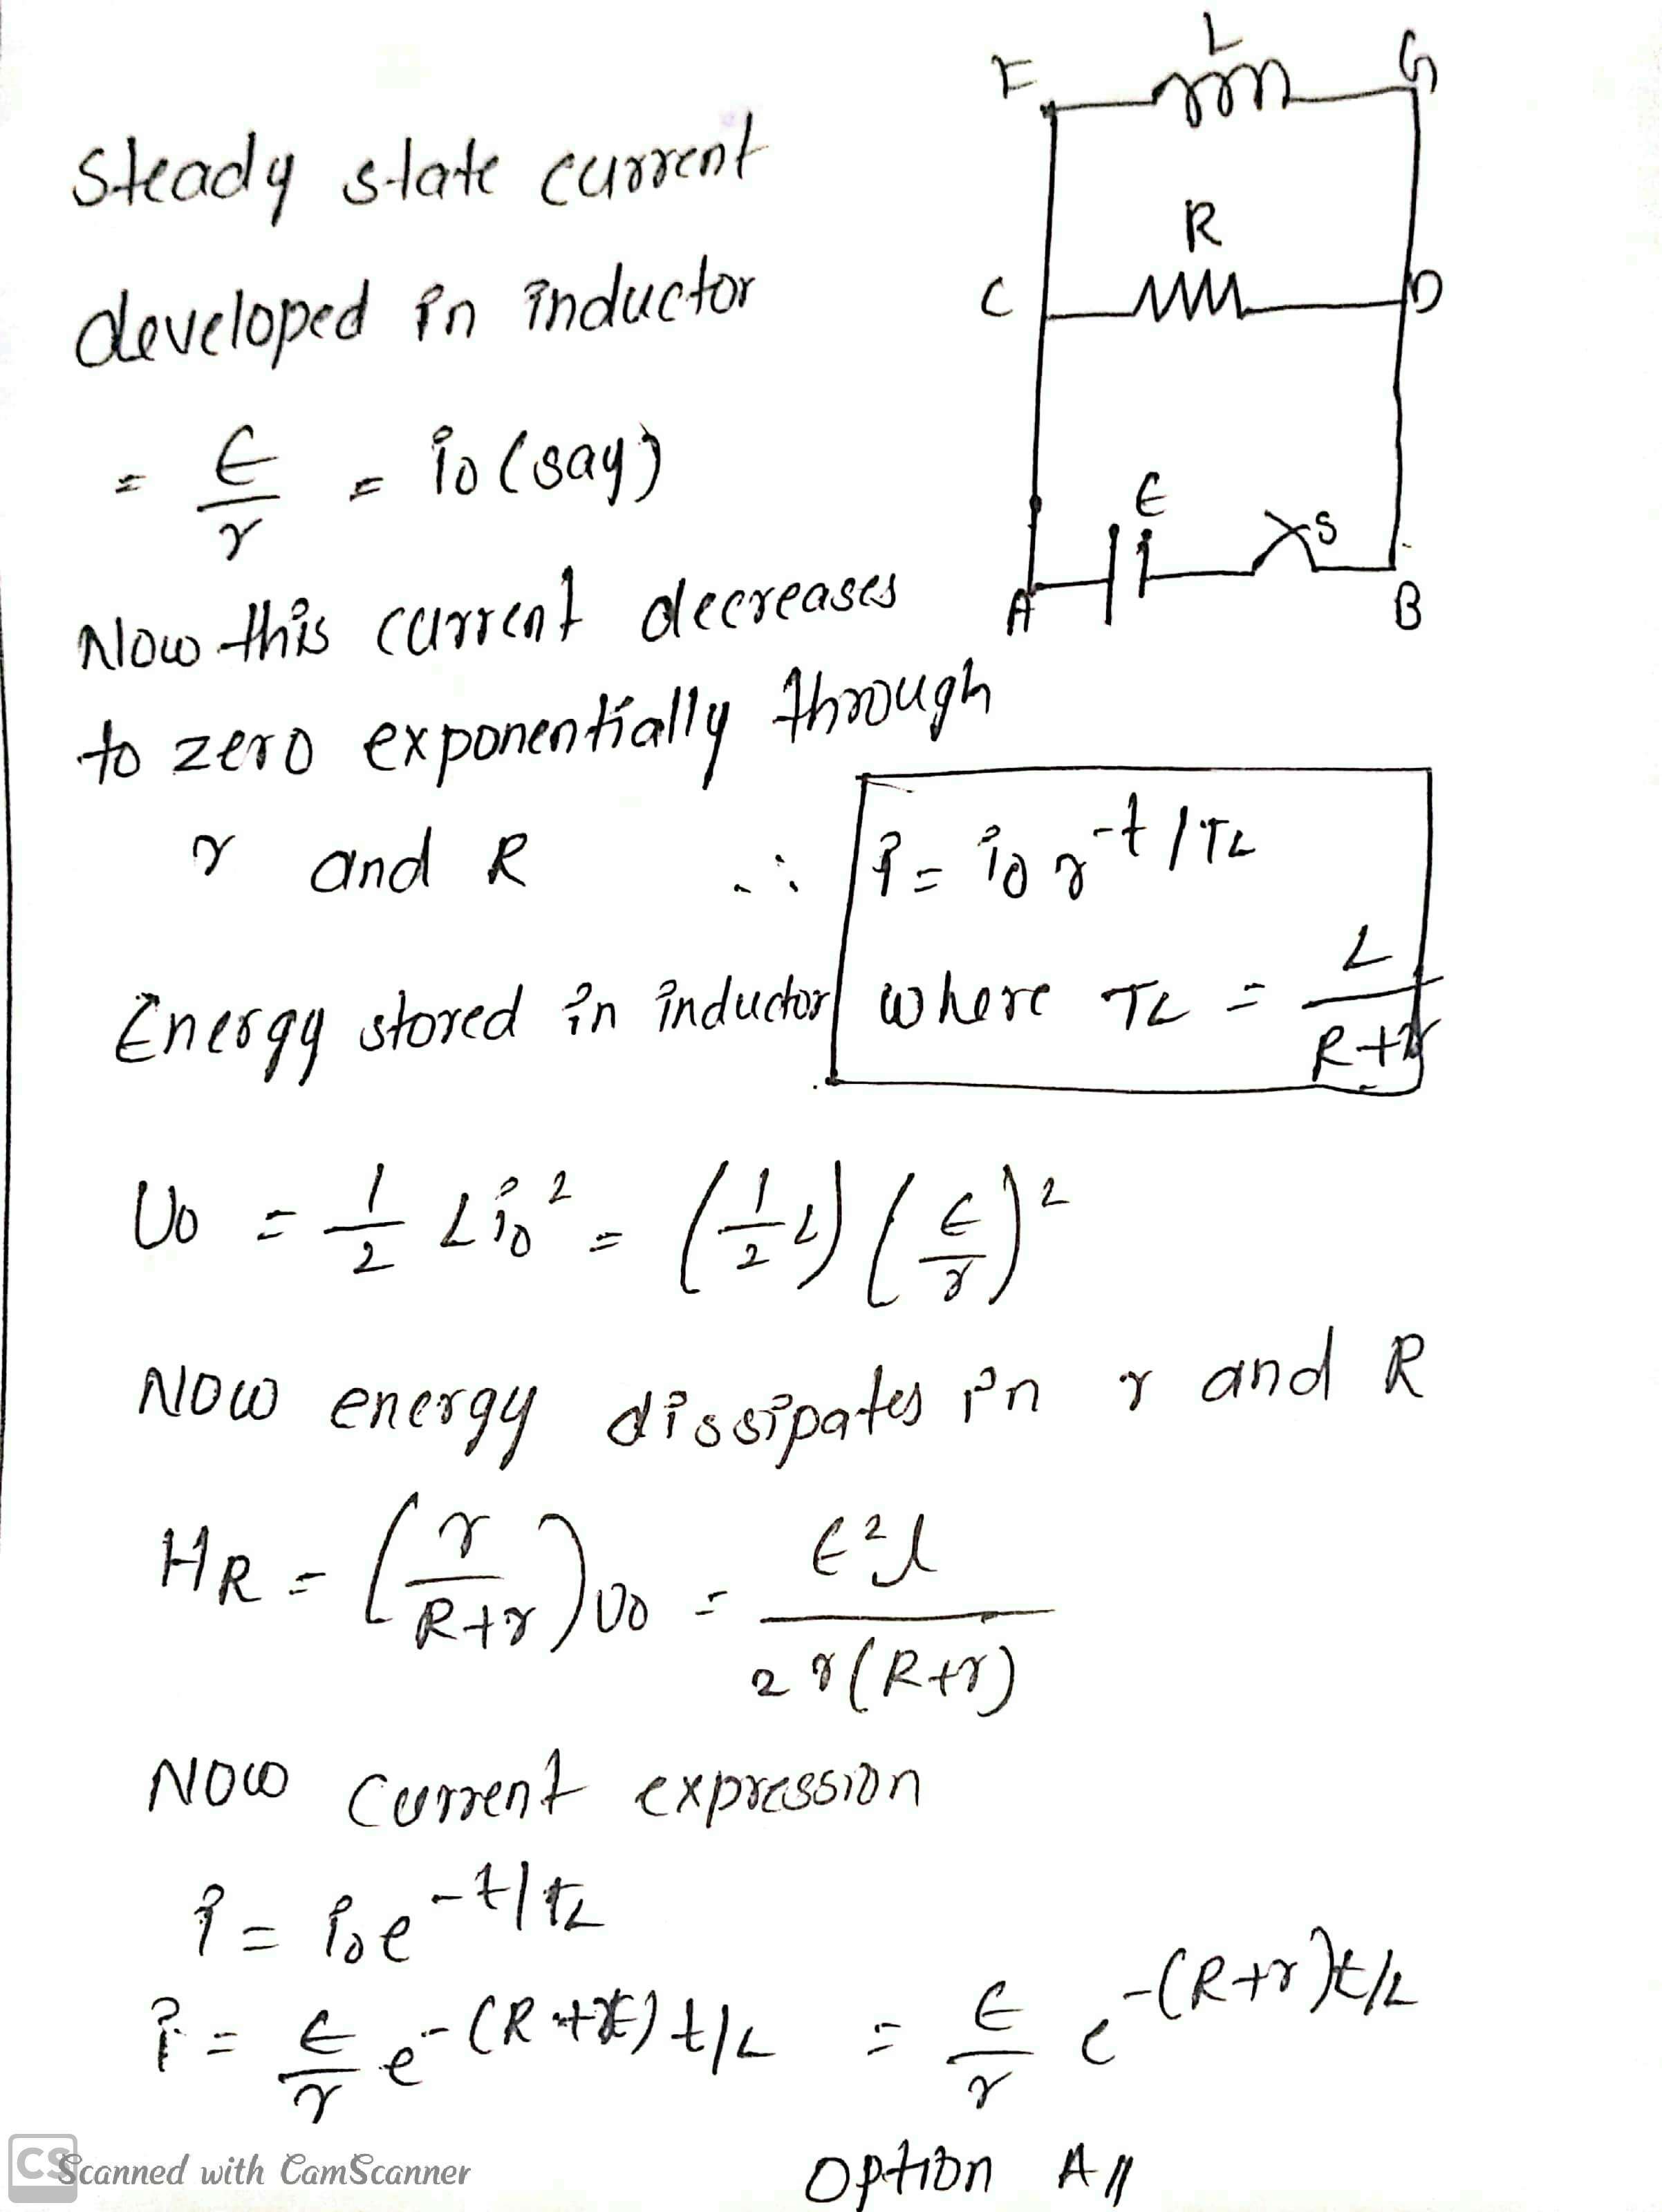 L
F G
steady state current
R
developed in inductor
C D
= ε/r = i0 (say)
ε S
A B
Now this current decreases
to zero exponentially through
r and R ∴ i = i0 r^-t/TL
Energy stored in inductor where TL = L/R+r
U0 = 1/2 L i0^2 = (1/2 L) (ε/r)^2
Now energy dissipates in r and R
HR = (r/R+r) U0 = ε^2 L/2r(R+r)
Now current expression
i = i0 e^-t/TL
i = ε/r e^-(R+r)t/L = ε/r e^-(R+r)t/L
option A//
CS Scanned with CamScanner